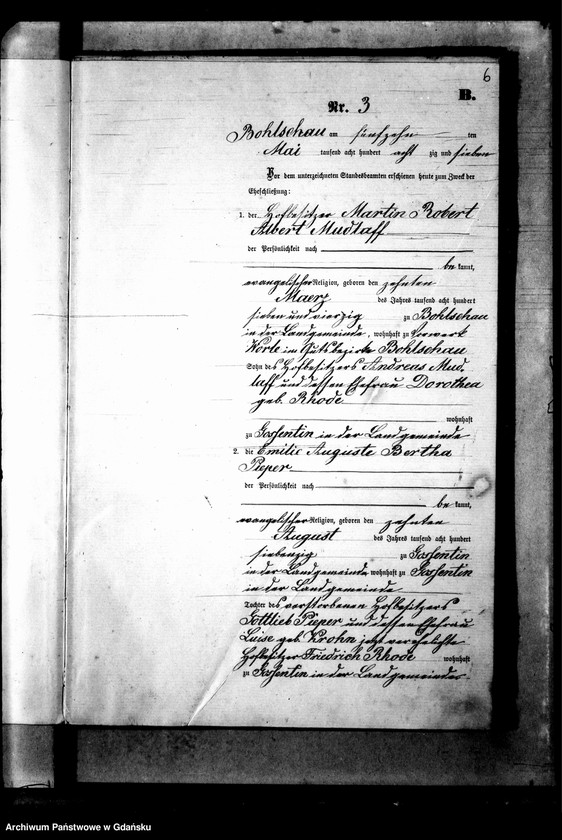 6
B.
Nr. 3
Bohlschau am fünfzehn ten
Mai tausend acht hundert acht zig und sieben
Vor dem unterzeichneten Standesbeamten erschienen heute zum Zweck der
Eheschließung:
1. der Hofbesitzer Martin Robert
Albert Mudlaff
der Persönlichkeit nach
be kannt,
evangelischer Religion, geboren den zehnten
Maerz des Jahres tausend acht hundert
sieben und vierzig zu Bohlschau
in der Landgemeinde, wohnhaft zu Vorwerk
Worle im Gutsbezirke Bohlschau
Sohn des Hofbesitzers Andreas Mud-
laff und dessen Ehefrau Dorothea
geb. Rhode
wohnhaft
zu Gossentin in der Landgemeinde
2. die Emilie Auguste Bertha
Pieper
der Persönlichkeit nach
be kannt,
evangelischer Religion, geboren den zehnten
August des Jahres tausend acht hundert
siebenzig zu Gossentin
in der Landgemeinde wohnhaft zu Gossentin
in der Landgemeinde
Tochter des verstorbenen Hofbesitzers
Gottlieb Pieper und dessen Ehefrau
Luise geb. Krohn jetzt verehelichte
Hofbesitzer Friedrich Rhode wohnhaft
zu Gossentin in der Landgemeinde
Archiwum Państwowe w Gdańsku